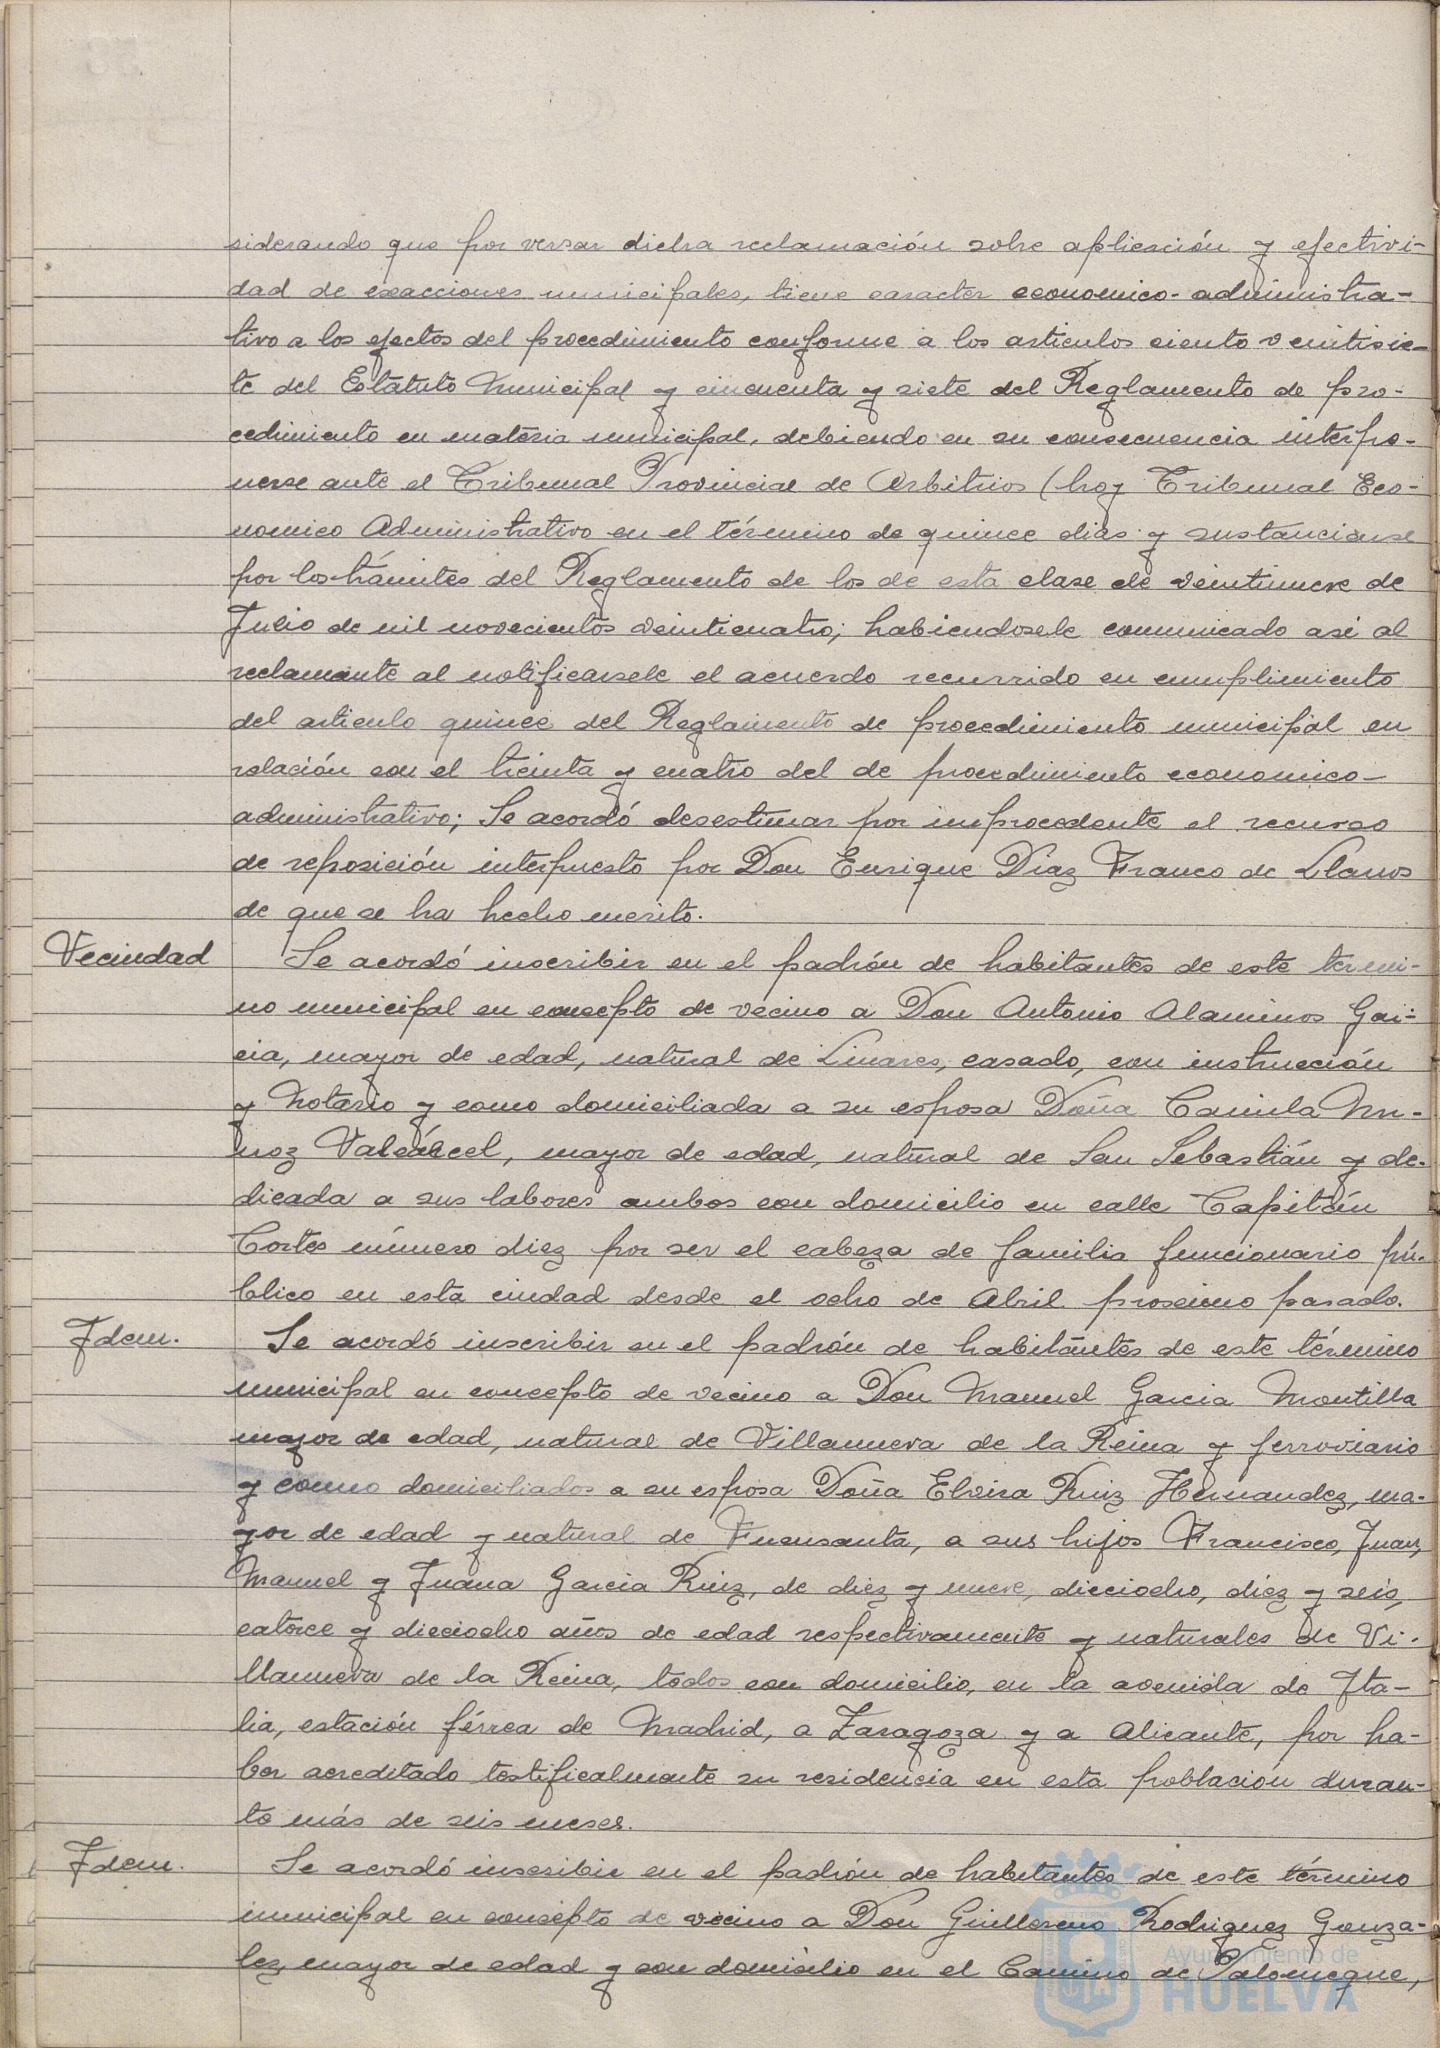 siderando que por versar dicha reclamación sobre aplicación y efectivi-
dad de exacciones municipales, tiene caracter economico-administra-
tivo a los efectos del procedimiento conforme a los articulos ciento veintisie-
te del Estatuto Municipal y cincuenta y siete del Reglamento de pro-
cedimiento en materia municipal, debiendo en su consecuencia interpo-
nerse ante el Tribunal Provincial de Arbitrios (hoy Tribunal Eco-
nomico Administrativo en el término de quince dias y sustanciarse
por los trámites del Reglamento de los de esta clase de veintinueve de
Julio de mil novecientos veinticuatro; habiendosele comunicado asi al
reclamante al notificarsele el acuerdo recurrido en cumplimiento
del articulo quince del Reglamento de procedimiento municipal en
relación con el treinta y cuatro del de procedimiento economico-
administrativo; Se acordó desestimar por improcedente el recurso
de reposición interpuesto por Don Enrique Diaz Franco de Llanos
de que se ha hecho merito.
Vecindad
Se acordó inscribir en el padrón de habitantes de este termi-
no municipal en concepto de vecino a Don Antonio Alaminos Gar-
cia, mayor de edad, natural de Linares, casado, con instrucción
y Notario y como domiciliada a su esposa Doña Camila Mu-
ñoz Valcárcel, mayor de edad, natural de San Sebastián y de-
dicada a sus labores ambos con domicilio en calle Capitán
Cortes número diez por ser el cabeza de familia funcionario pú-
blico en esta ciudad desde el ocho de Abril proximo pasado.
Idem.
Se acordó inscribir en el padrón de habitantes de este término
municipal en concepto de vecino a Don Manuel Garcia Montilla
mayor de edad, natural de Villanueva de la Reina y ferroviario
y como domiciliados a su esposa Doña Elvira Ruiz Hernandez, ma-
yor de edad y natural de Fuensanta, a sus hijos Francisco, Juan,
Manuel y Juana Garcia Ruiz, de diez y nueve, dieciocho, diez y seis,
catorce y dieciocho años de edad respectivamente y naturales de Vi-
llanueva de la Reina, todos con domicilio, en la avenida de Ita-
lia, estación férrea de Madrid, a Zaragoza y a Alicante, por ha-
ber acreditado testificalmente su residencia en esta población duran-
te más de seis meses.
Idem.
Se acordó inscribir en el padrón de habitantes de este término
municipal en concepto de vecino a Don Guillermo Rodriguez Gonza-
lez, mayor de edad y con domicilio en el Camino de Palomeque,
Ayuntamiento de
HUELVA